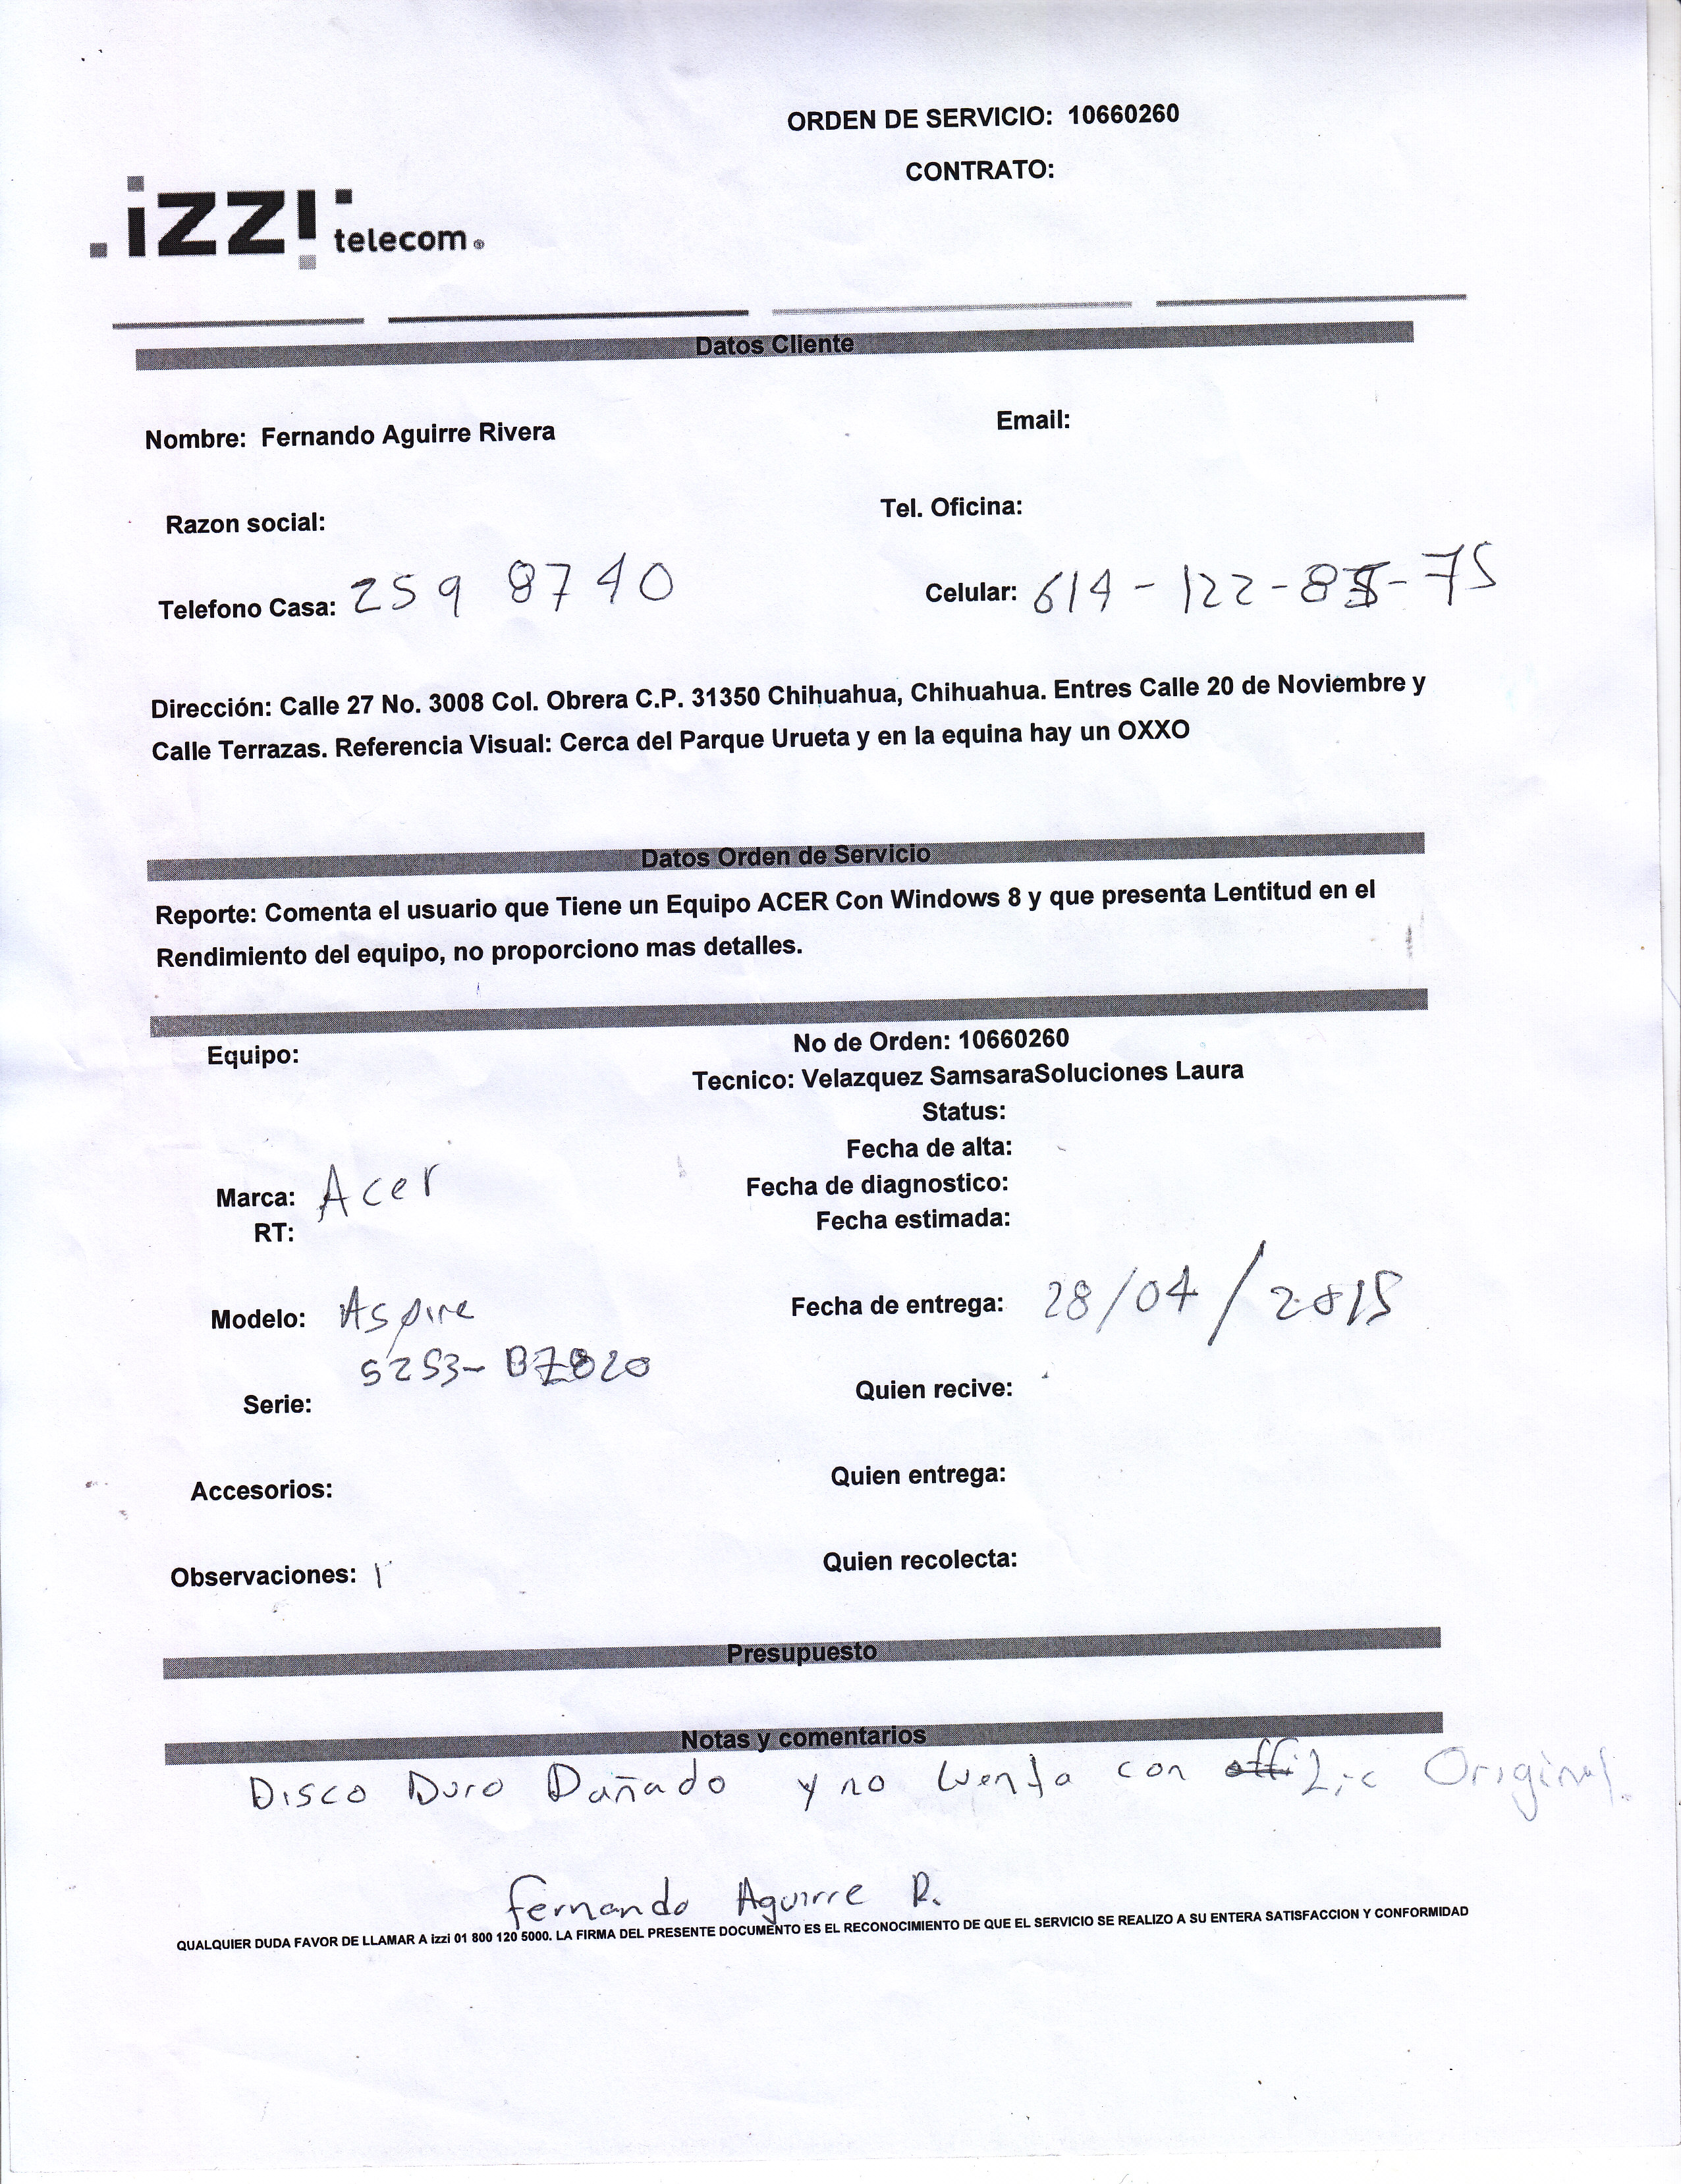 ORDEN DE SERVICIO: 10660260
CONTRATO:
izzi telecom
Datos Cliente
Nombre: Fernando Aguirre Rivera Email:
Razon social: Tel. Oficina:
Telefono Casa: 259 8740 Celular: 614-122-85-75
Dirección: Calle 27 No. 3008 Col. Obrera C.P. 31350 Chihuahua, Chihuahua. Entres Calle 20 de Noviembre y
Calle Terrazas. Referencia Visual: Cerca del Parque Urueta y en la equina hay un OXXO
Datos Orden de Servicio
Reporte: Comenta el usuario que Tiene un Equipo ACER Con Windows 8 y que presenta Lentitud en el
Rendimiento del equipo, no proporciono mas detalles.
Equipo: No de Orden: 10660260
Tecnico: Velazquez SamsaraSoluciones Laura
Status:
Fecha de alta:
Marca: Acer Fecha de diagnostico:
RT: Fecha estimada:
Modelo: Aspire Fecha de entrega: 28/04/2015
5253-
Serie: Quien recive:
Accesorios: Quien entrega:
Observaciones: Quien recolecta:
Presupuesto
Notas y comentarios
Disco Duro Dañado y no cuenta con Lic Original.
Fernando Aguirre R.
QUALQUIER DUDA FAVOR DE LLAMAR A izzi 01 800 120 5000. LA FIRMA DEL PRESENTE DOCUMENTO ES EL RECONOCIMIENTO DE QUE EL SERVICIO SE REALIZO A SU ENTERA SATISFACCION Y CONFORMIDAD